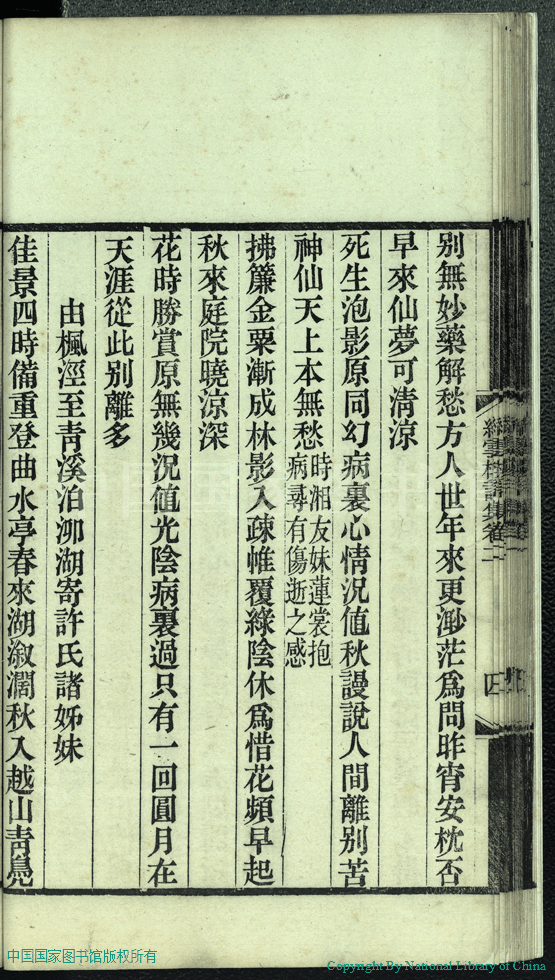 別無妙藥解愁方人世年來更渺茫爲問昨宵安枕否
早來仙夢可清涼
死生泡影原同幻病裏心情況値秋謾說人間離別苦
神仙天上本無愁時湘友妹蓮裳抱
病尋有傷逝之感
拂簾金粟漸成林影入疎帷覆綠陰休爲惜花頻早起
秋來庭院曉涼深
花時勝賞原無幾況値光陰病裏過只有一回圓月在
天涯從此別離多
由楓涇至青溪泊泖湖寄許氏諸姊妹
佳景四時備重登曲水亭春來湖漵濶秋入越山青鳧
詩集卷二
四
中国国家图书馆版权所有
Copyright By National Library of China